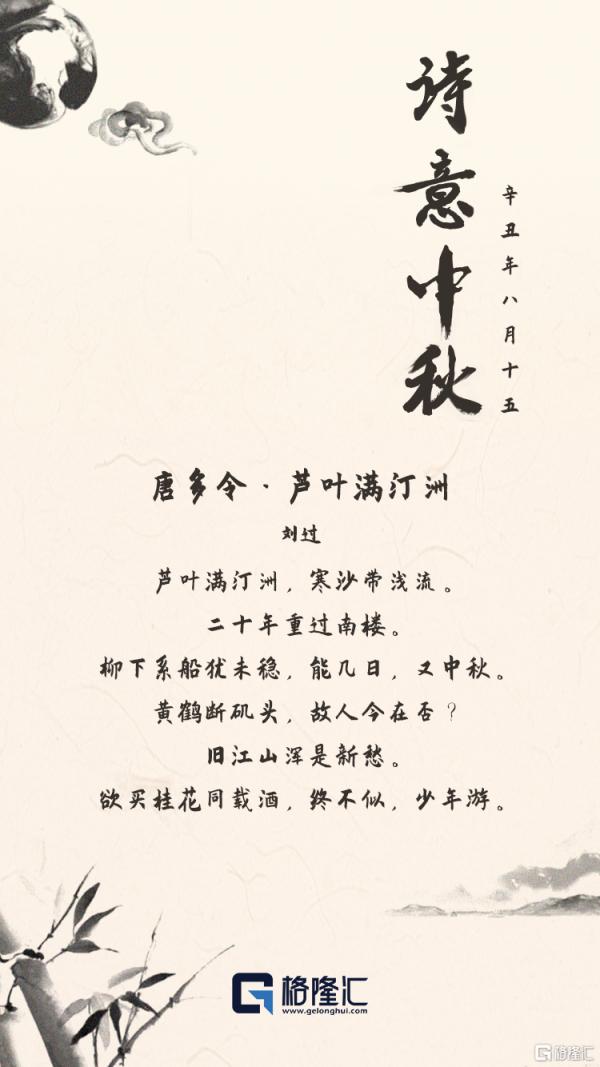 诗意中秋
辛丑年八月十五
唐多令·芦叶满汀洲
刘过
芦叶满汀洲，寒沙带浅流。
二十年重过南楼。
柳下系船犹未稳，能几日，又中秋。
黄鹤断矶头，故人今在否？
旧江山浑是新愁。
欲买桂花同载酒，终不似，少年游。
格隆汇
www.gelonghui.com
格隆汇